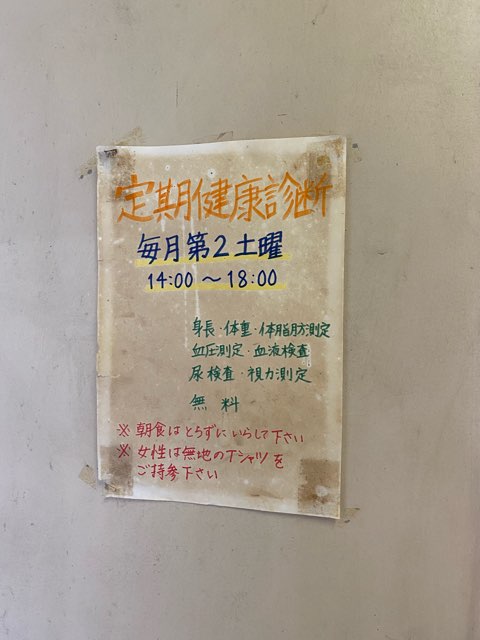 定期健康診断
毎月第2土曜
14:00〜18:00
身長・体重・体脂肪測定
血圧測定・血液検査
尿検査・視力測定
無料
※朝食はとらずにいらして下さい
※女性は無地のTシャツを
ご持参下さい